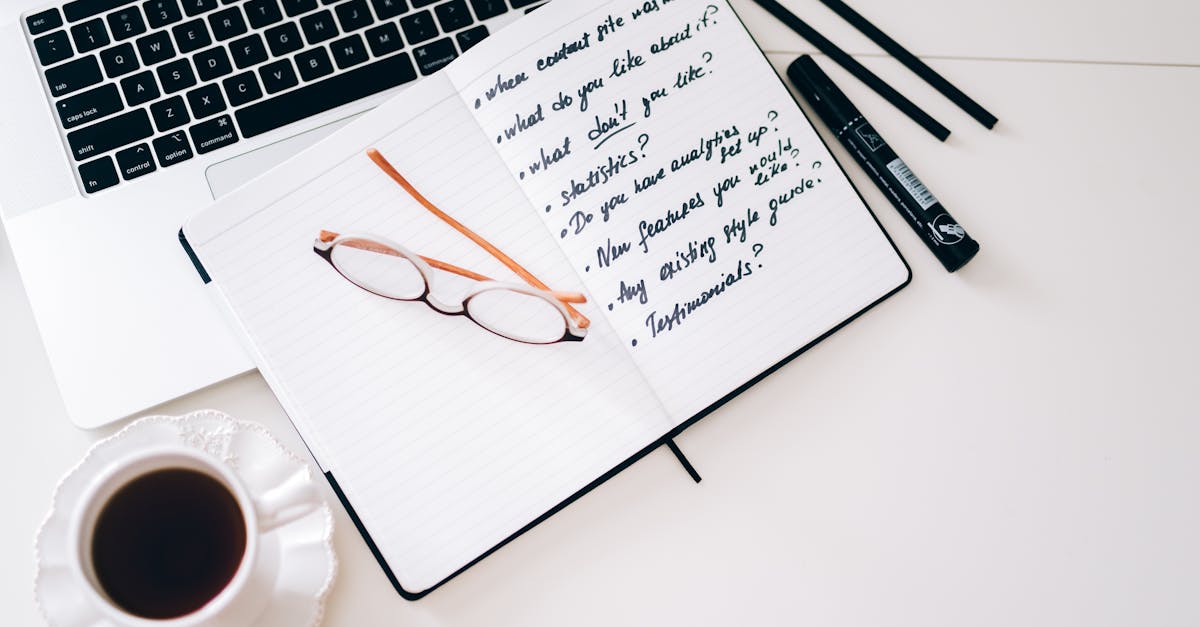 esc
! 1
@ 2
# 3
tab
Q
W
E
R
T
Y
U
I
O
P
caps lock
A
S
D
F
G
H
J
K
L
shift
Z
X
C
V
B
N
M
fn
control
option
command
command
• when content site was
• what do you like about it?
• what don't you like?
• statistics?
• Do you have analytics set up?
• New features you would like?
• Any existing style guide?
• Testimonials?